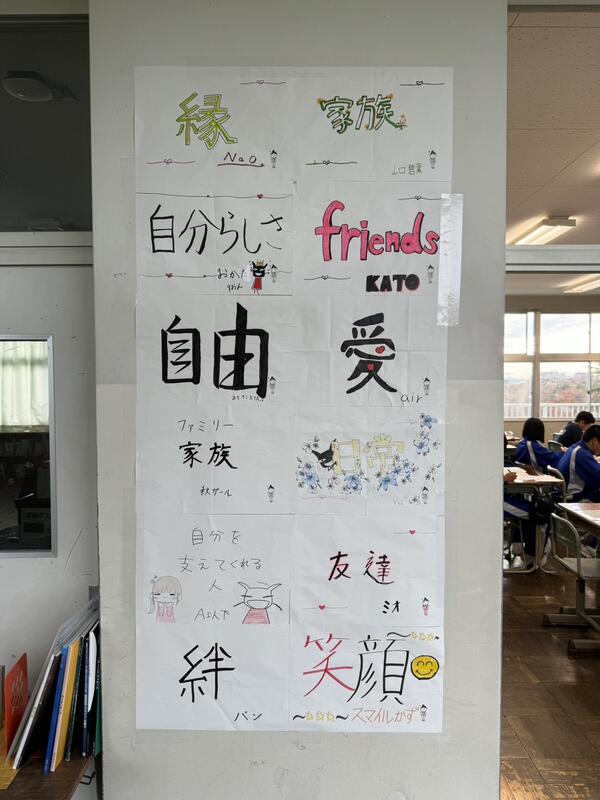 縁
Nao
家族
山口
自分らしさ
おかだ
friends
KATO
自由
愛
air
ファミリー
家族
秋ガール
日常
自分を
支えてくれる
人
A以下
友達
ミオ
絆
パン
笑顔
スマイルかず